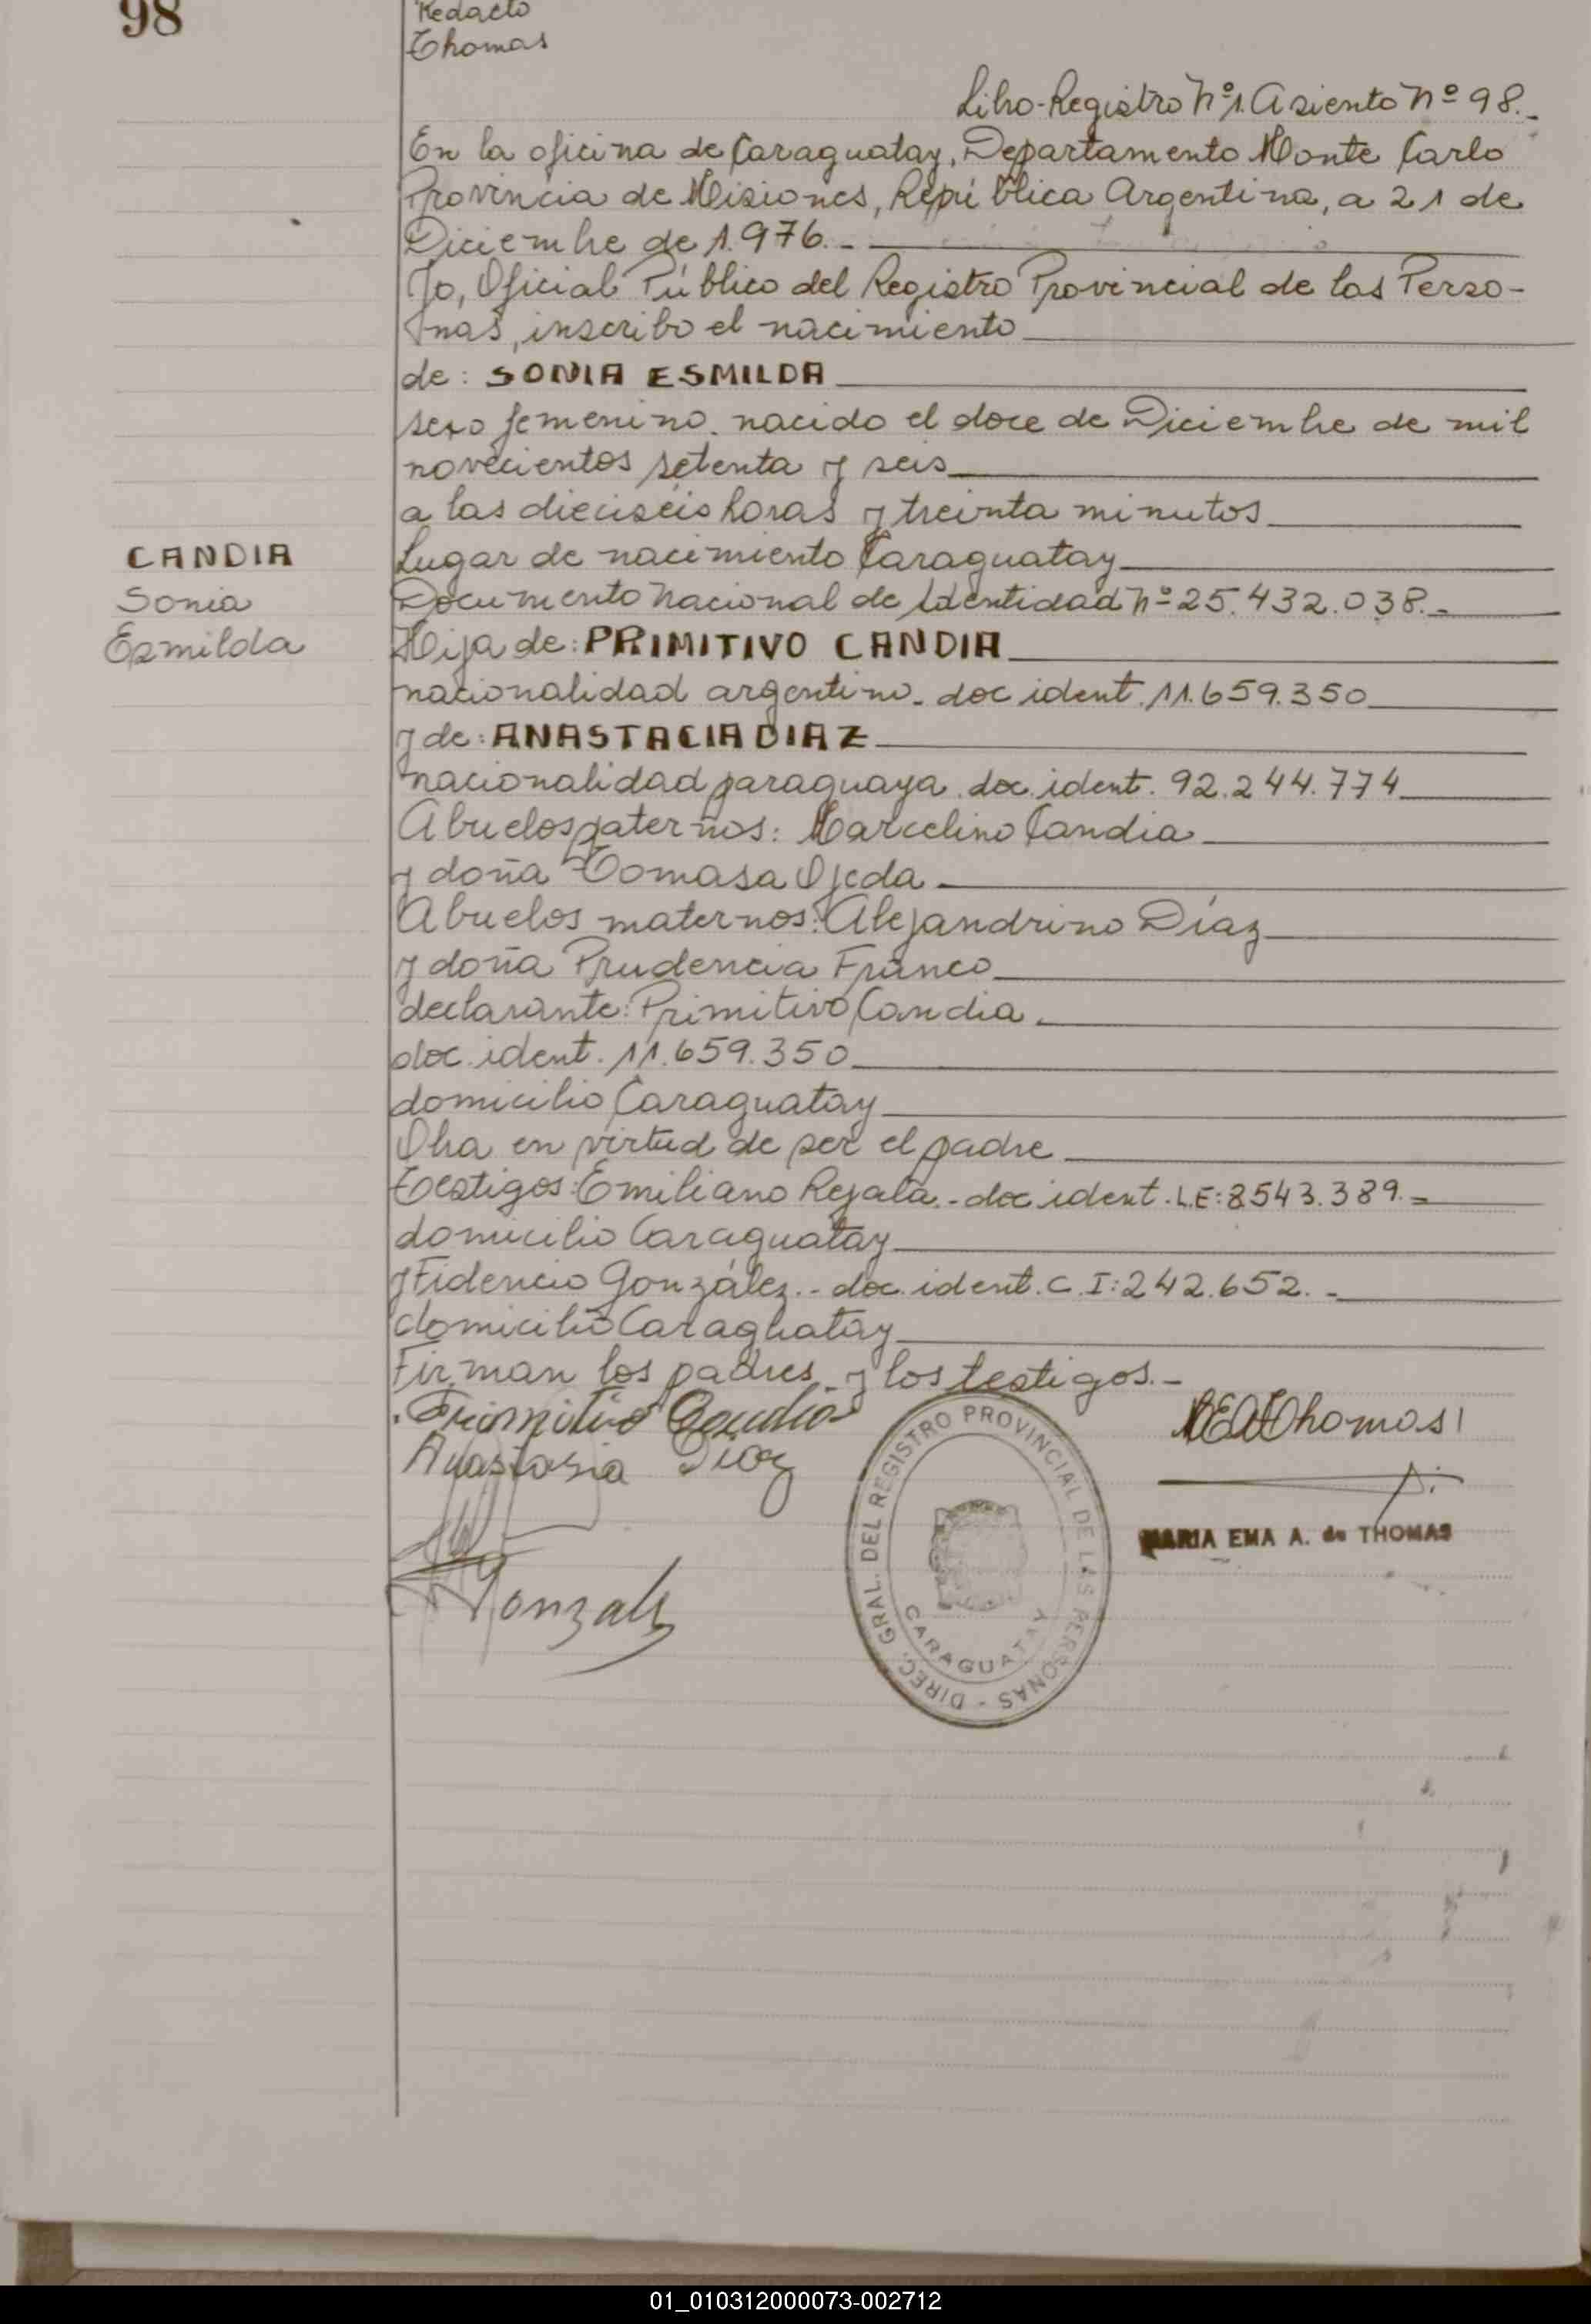 98
Redactó
Thomas
Libro-Registro Nº1. Asiento Nº 98.-
En la oficina de Caraguatay, Departamento Monte Carlo
Provincia de Misiones, República Argentina, a 21 de
Diciembre de 1.976.-
Yo, Oficial Público del Registro Provincial de las Perso-
nas, inscribo el nacimiento
de: SONIA ESMILDA
sexo femenino. nacido el doce de Diciembre de mil
novecientos setenta y seis
a las dieciséis horas y treinta minutos
CANDIA
Sonia
Esmilda
Lugar de nacimiento Caraguatay
Documento Nacional de Identidad Nº 25.432.038.-
Hija de: PRIMITIVO CANDIA
nacionalidad argentino. doc ident. 11.659.350
y de: ANASTACIA DIAZ
nacionalidad paraguaya. doc. ident. 92.244.774
Abuelos paternos: Marcelino Candia
y doña Tomasa Ojeda.
Abuelos maternos: Alejandrino Díaz
y doña Prudencia Franco
declarante: Primitivo Candia.
doc. ident. 11.659.350
domicilio Caraguatay
Obra en virtud de ser el padre
Testigos: Emiliano Rejala.- doc ident. L.E: 8543.389.=
domicilio Caraguatay
y Fidencio González.- doc. ident. C.I: 242.652.-
domicilio Caraguatay
Firman los padres y los testigos.-
Primitivo Candia
Anastasia Diaz
Gonzalez
DIREC. GRAL. DEL REGISTRO PROVINCIAL DE LAS PERSONAS -
CARAGUATAY
MEA Thomas
MARIA EMA A. de THOMAS
01_010312000073-002712